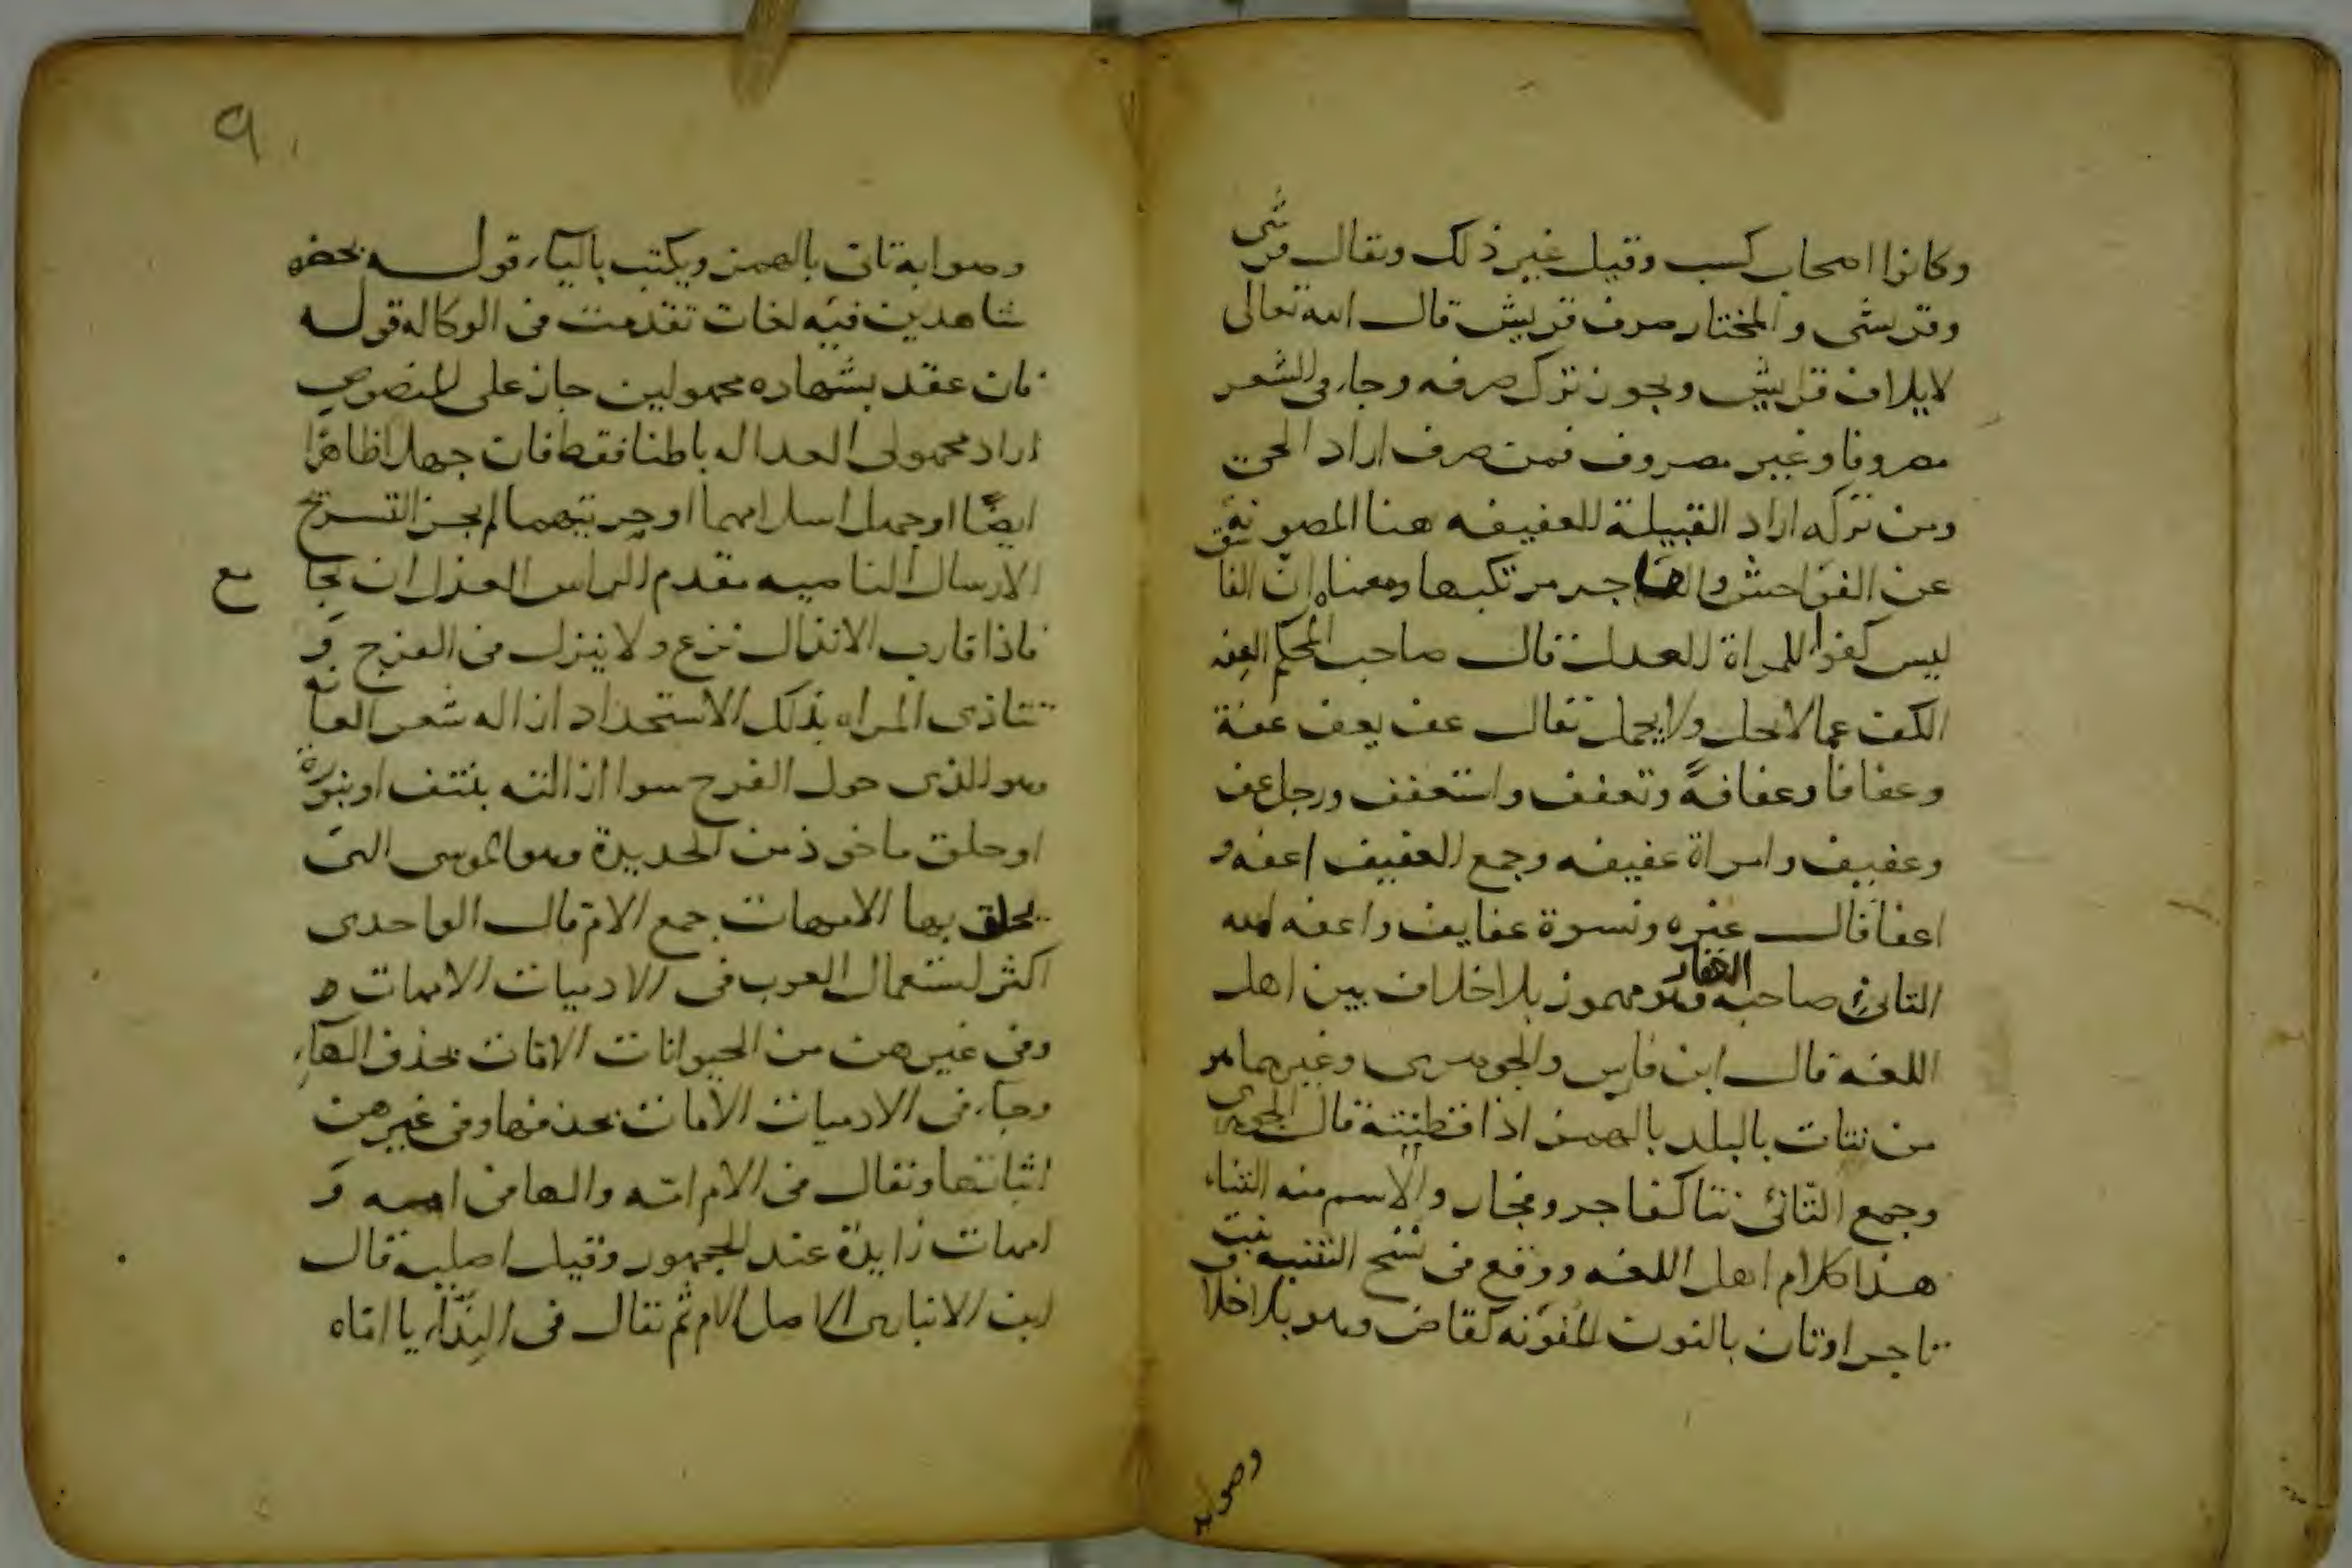 وكانوا اصحاب كسب وقيل غير ذلك ويقال قرشى
وقريشى والمختار صرف قريش قال الله تعالى
لايلاف قريش ويجوز ترك صرفه وجاء فى الشعر
مصروفا وغير مصروف فمن صرف اراد الحى
ومن تركه اراد القبيلة للعفيفه هنا المصونه
عن الفواحش والفاجر مرتكبها ومعناه ان الفاسق
ليس كفوا للمراة العدل قال صاحب المحكم العفه
الكف عما لا يحل ولا يجمل يقال عف يعف عفة
وعفافا وعفافة وتعفف واستعفف ورجل عف
وعفيف وامراة عفيفه وجمع العفيف اعفه و
اعفا قال غيره ونسوة عفايف واعفه الله
التانئ صاحب العقار وهو مهموز بلا خلاف بين اهل
اللغه قال ابن فارس والجوهرى وغيرهما هو
من تنات بالبلد بالهمز اذا قطنته قال الجوهرى
وجمع التانئ تنا كفاجر وفجار والاسم منه التناء
هذا كلام اهل اللغه ووقع فى نسخ التنبيه بنت
تاجر او تان بالنون المنونه كقاض وهو بلا خلاف
وصوابه
٩٠
وصوابه تان بالهمز ويكتب بالياء قوله بحضره
شاهدين فيه لغات تقدمت فى الوكاله قوله
فان عقد بشهاده مجهولين جاز على المنصوص
اراد مجهولى العداله باطنا فقط فان جهلا ظاهرا
ايضا او جهل اسلامهما او حريتهما لم يجز التسريح
الارسال الناصيه مقدم الراس العزل ان يجامع
فاذا قارب الانزال نزع ولا ينزل فى الفرج و
تتاذى المراه بذلك الاستحداد ازاله شعر العانه
وهو الذى حول الفرج سوا ازالته بنتف او بنورة
او حلق ماخوذ من الحديدة وهو الموسى التى
يحلق بها الامهات جمع الام قال الواحدى
اكثر استعمال العرب فى الادميات الامهات
وفى غيرهن من الحيوانات الامات بحذف الهاء
وجاء فى الادميات الامات بحذفها وفى غيرهن
اثباتها ويقال فى الام امه والها فى امه و
امهات زايدة عند الجمهور وقيل اصليه قال
ابن الانبارى الاصل الام ثم يقال فى النداء يا اماه